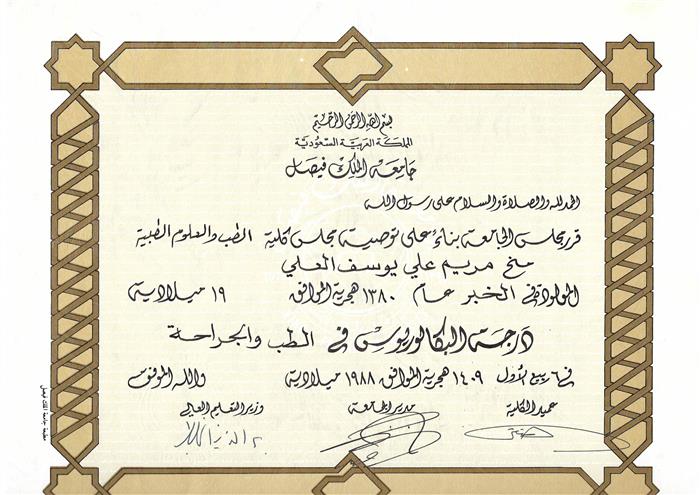 بسم الله الرحمن الرحيم
المملكة العربية السعودية
جامعة الملك فيصل
الحمد لله والصلاة والسلام على رسول الله
قرر مجلس الجامعة بناء على توصية مجلس كلية الطب والعلوم الطبية
منح مريم علي يوسف العلي
المولودة في الخبر عام ١٣٨٠ هجرية الموافق ١٩ ميلادية
درجة البكالوريوس في الطب والجراحة
في ٦ ربيع الأول ١٤٠٩ هجرية الموافق ١٩٨٨ ميلادية والله الموفق
عميد الكلية مدير الجامعة وزير التعليم العالي
مطبعة جامعة الملك فيصل